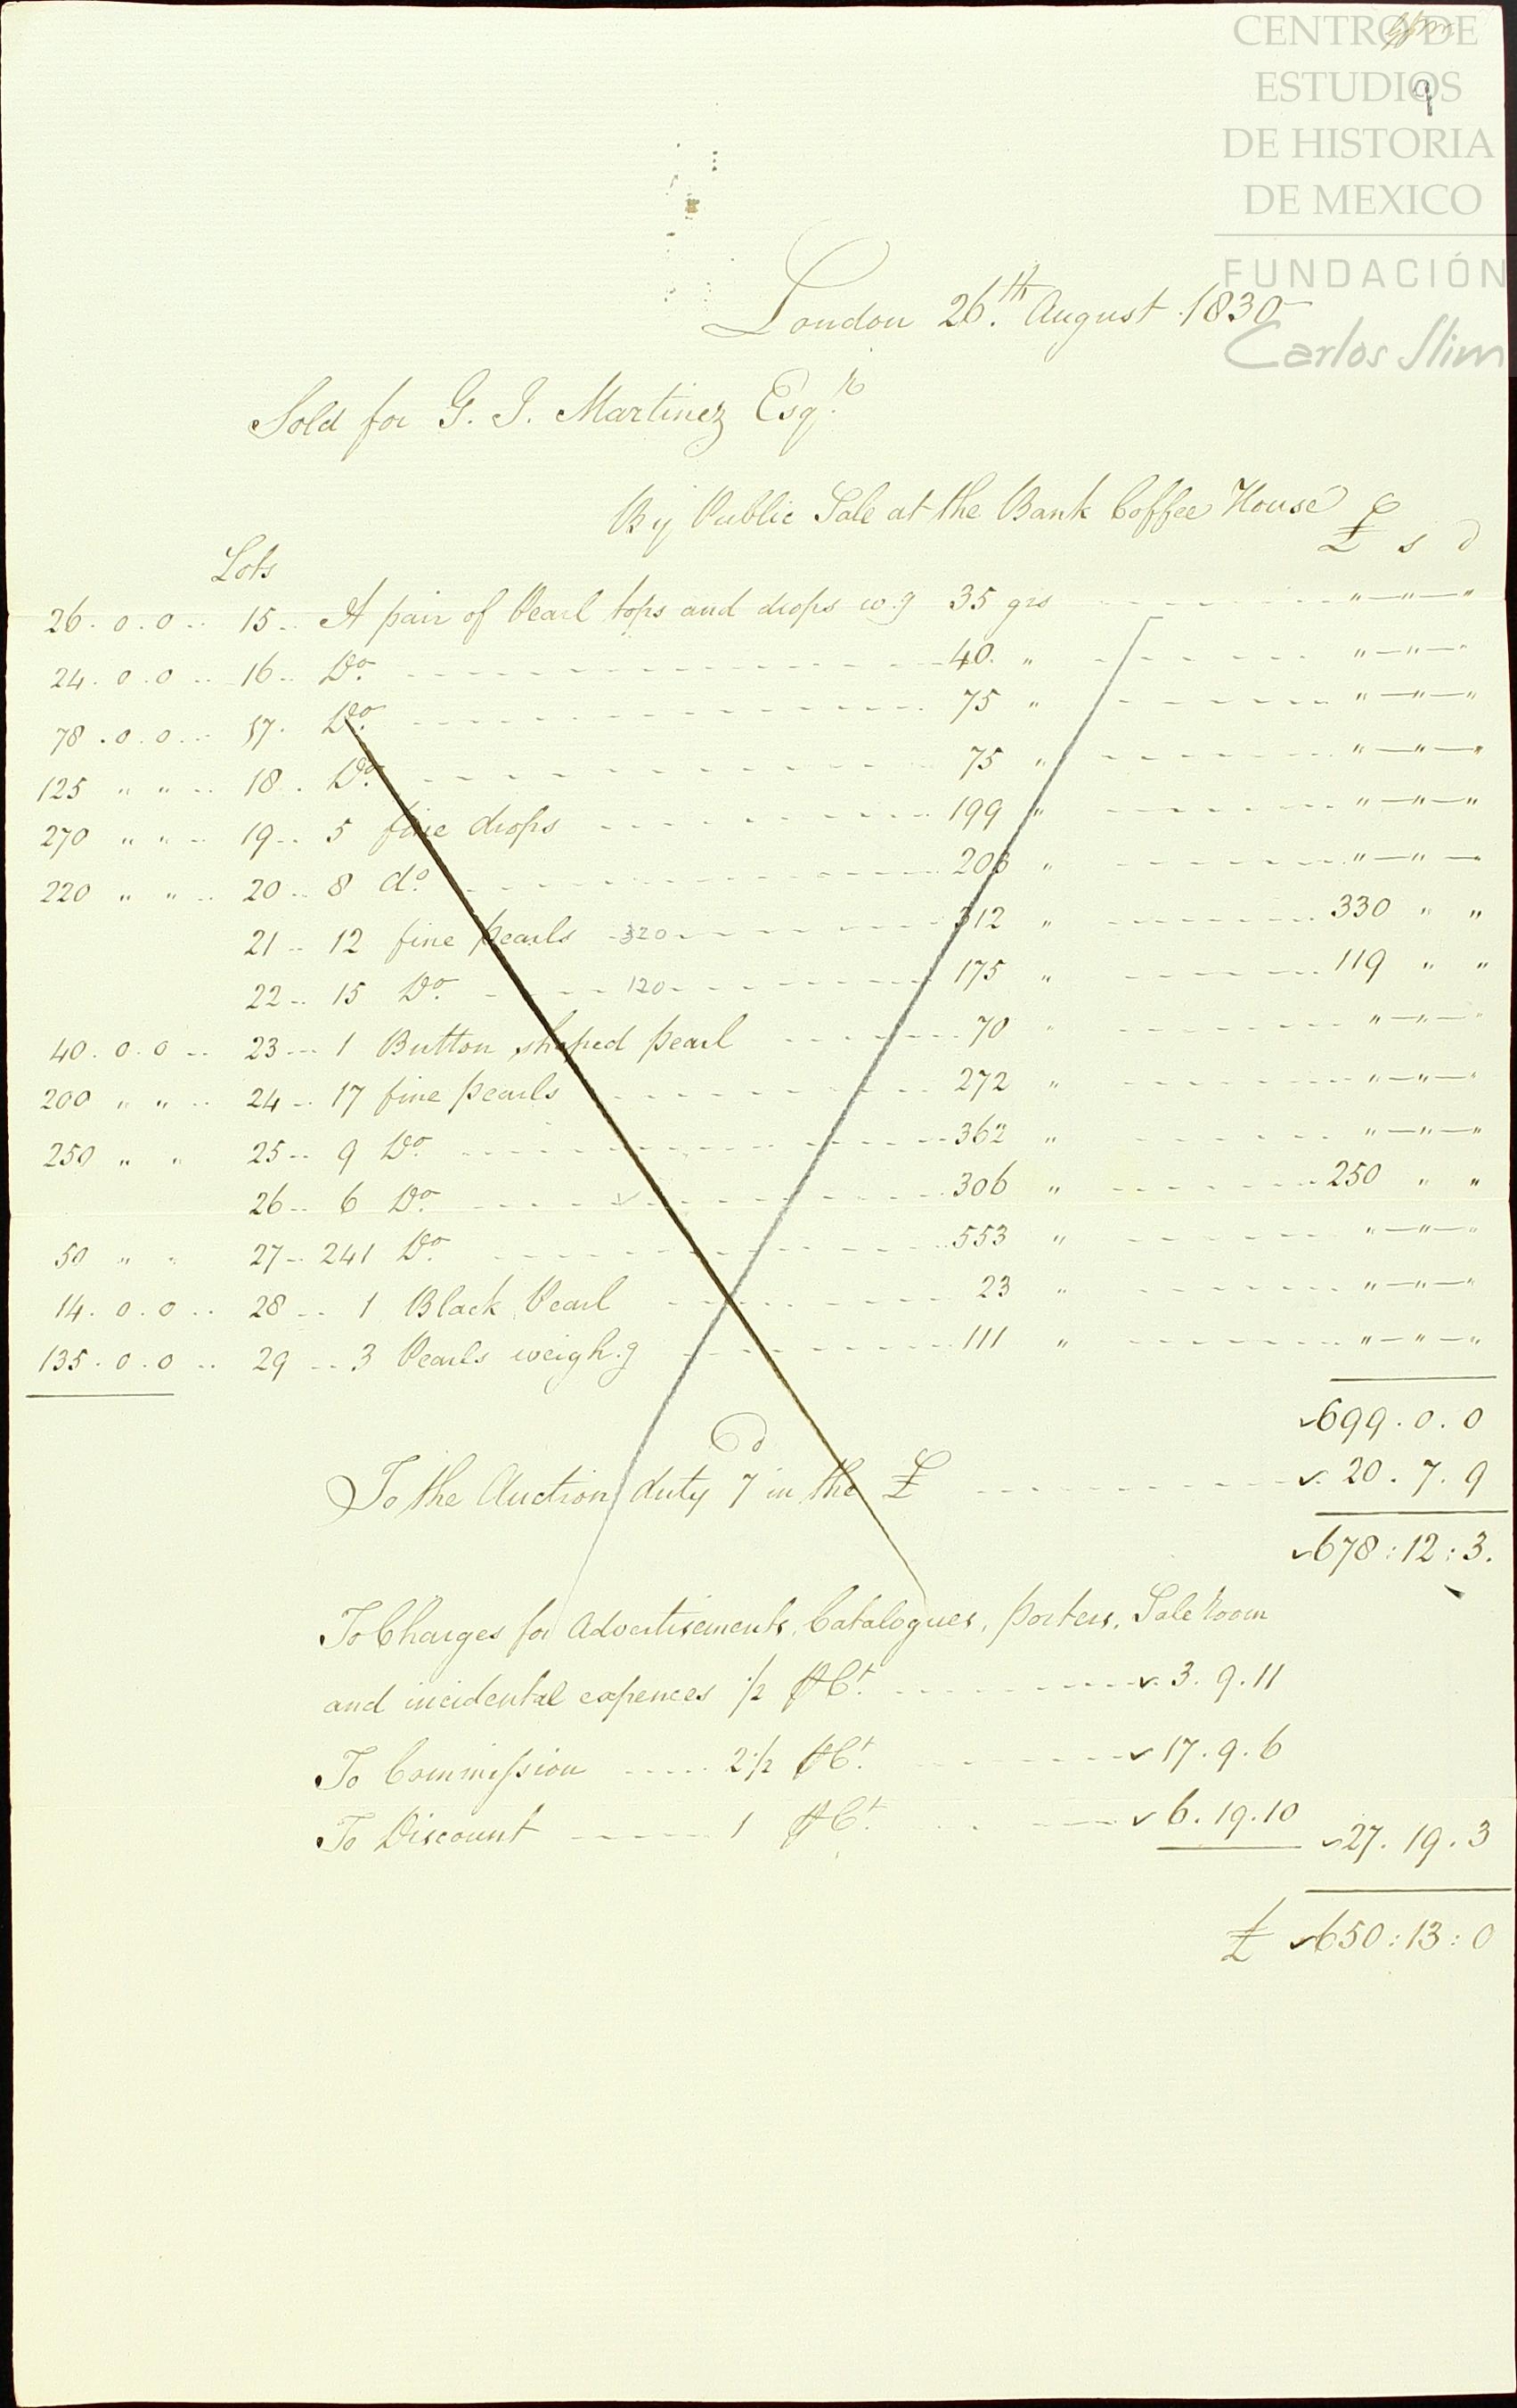 CENTRO DE
ESTUDIOS
DE HISTORIA
DE MEXICO
FUNDACIÓN
Carlos Slim
9
London 26.th August 1830
Sold for G. J. Martinez Esq.r
By Public Sale at the Bank Coffee House £ s d
Lots
26. 0. 0 .. 15 .. A pair of Pearl tops and drops w.g 35 grs " — " — "
24. 0. 0 .. 16 .. Do. 40. " " — " — "
78. 0. 0 .. 17. Do. 75 " " — " — "
125 " " .. 18. Do. 75 " " — " — "
270 " " .. 19 .. 5 fine drops 199 " " — " — "
220 " " .. 20 .. 8 do. 203 " " — " —
21 .. 12 fine pearls 320 312 " 330 " "
22 .. 15 Do. 120 175 " 119 " "
40. 0. 0 .. 23 .. 1 Button shaped pearl 70 " " — " — "
200 " " .. 24 .. 17 fine pearls 272 " " — " — "
250 " " 25 .. 9 Do. 362 " " — " — "
26 .. 6 Do. 306 " 250 " "
50 " " 27 .. 241 Do. 553 " " — " — "
14. 0. 0 .. 28 .. 1 Black Pearl 23 " " — " — "
135. 0. 0 .. 29 .. 3 Pearls weigh.g 111 " " — " — "
699. 0. 0
To the Auction duty 7d in the £ 20. 7. 9
678:12:3.
To Charges for Advertisements, Catalogues, porters, Sale Room
and incidental expences ½ ⅌ Ct. 3. 9. 11
To Commission 2½ ⅌ Ct. 17. 9. 6
To Discount 1 ⅌ Ct. 6. 19. 10 27. 19. 3
£ 650:13:0